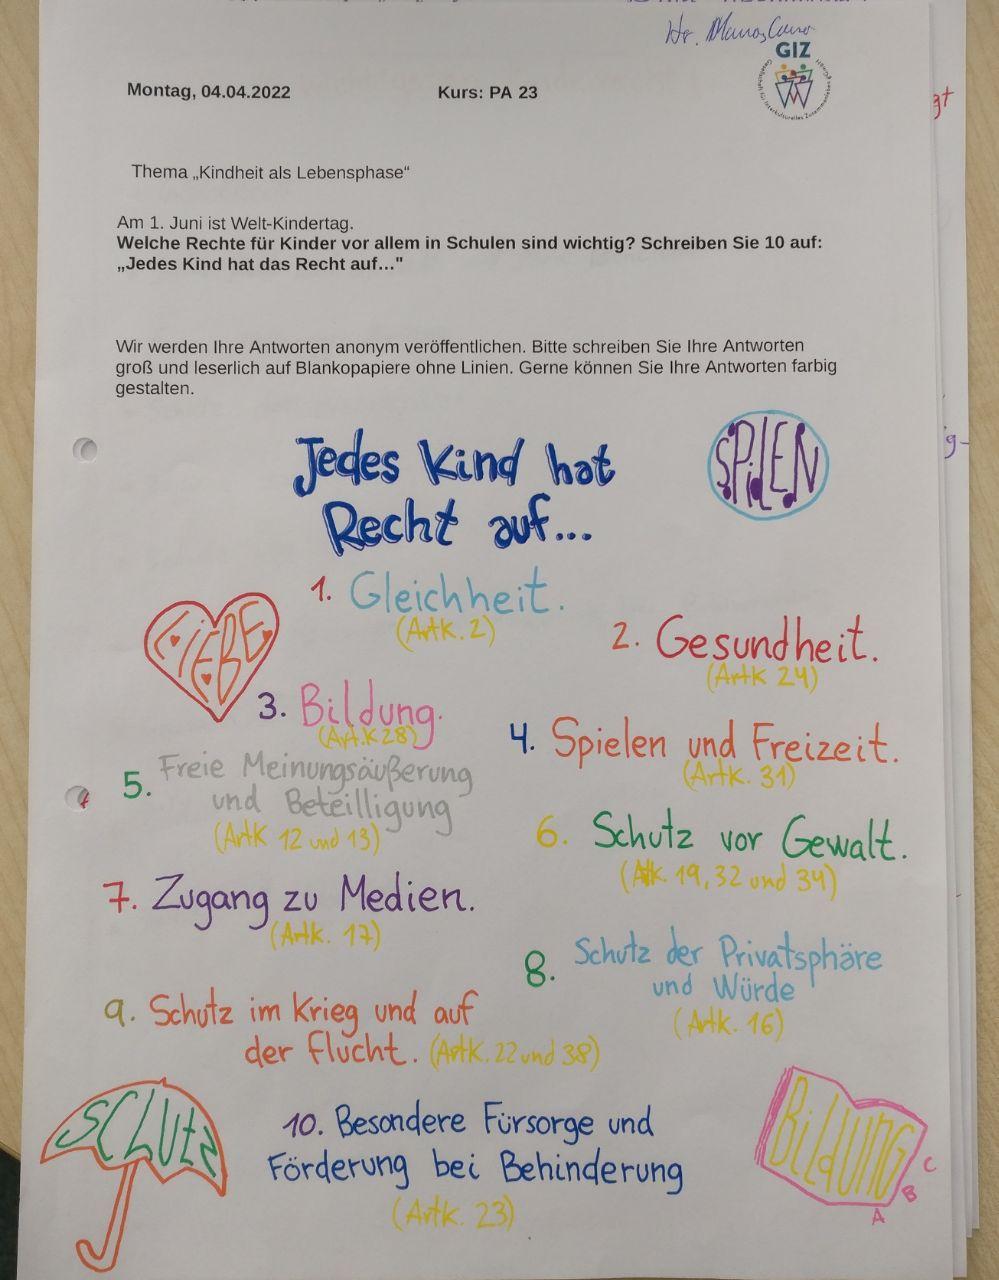 Hr.
GIZ
Gesellschaft für Interkulturelles Zusammenleben gGmbH
Montag, 04.04.2022 Kurs: PA 23
gt
Thema „Kindheit als Lebensphase“
Am 1. Juni ist Welt-Kindertag.
Welche Rechte für Kinder vor allem in Schulen sind wichtig? Schreiben Sie 10 auf:
„Jedes Kind hat das Recht auf…"
Wir werden Ihre Antworten anonym veröffentlichen. Bitte schreiben Sie Ihre Antworten
groß und leserlich auf Blankopapiere ohne Linien. Gerne können Sie Ihre Antworten farbig
gestalten.
Jedes Kind hat
Recht auf...
SPiLEN
1. Gleichheit.
(Artk. 2)
LiEBE
2. Gesundheit.
(Artk 24)
3. Bildung.
(Art.K 28)
4. Spielen und Freizeit.
(Artk. 31)
5. Freie Meinungsäußerung
und Beteilligung
(Artk 12 und 13)
6. Schutz vor Gewalt.
(Atk. 19, 32 und 34)
7. Zugang zu Medien.
(Artk. 17)
8. Schutz der Privatsphäre
und Würde
(Artk. 16)
9. Schutz im Krieg und auf
der Flucht. (Artk. 22 und 38)
SCHUtz
10. Besondere Fürsorge und
Förderung bei Behinderung
(Artk. 23)
BildUNG
A B C